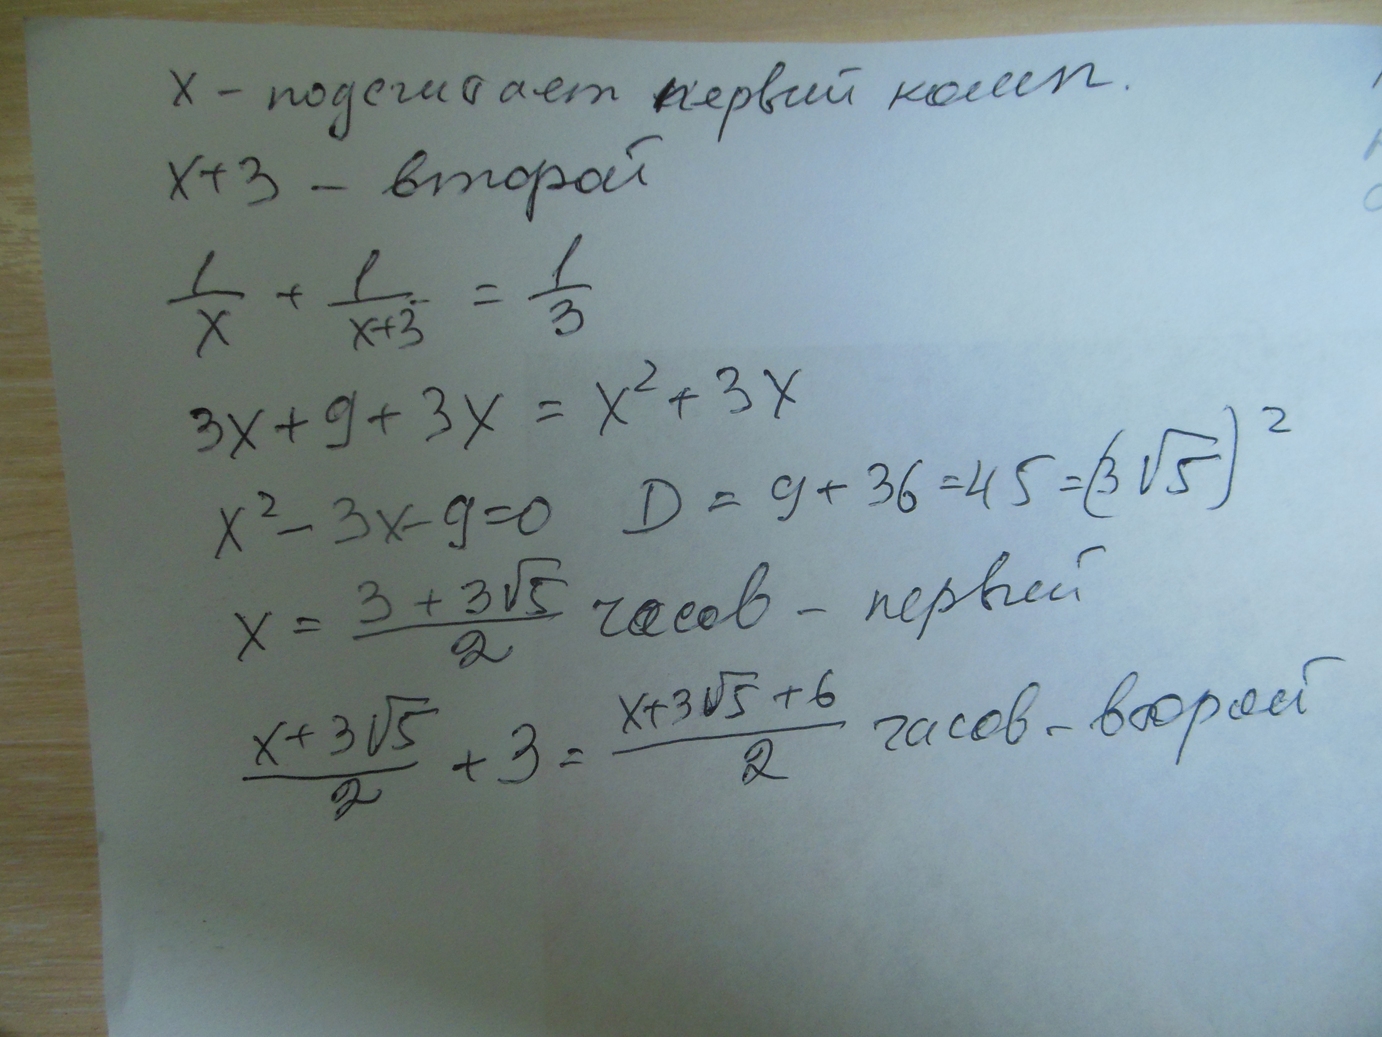 x - подсчитает первый комп.
x+3 - второй
1/x + 1/(x+3) = 1/3
3x+9+3x = x²+3x
x²-3x-9=0 D = 9+36=45=(3√5)²
x = (3+3√5)/2 часов - первый
(x+3√5)/2 +3 = (x+3√5+6)/2 часов - второй